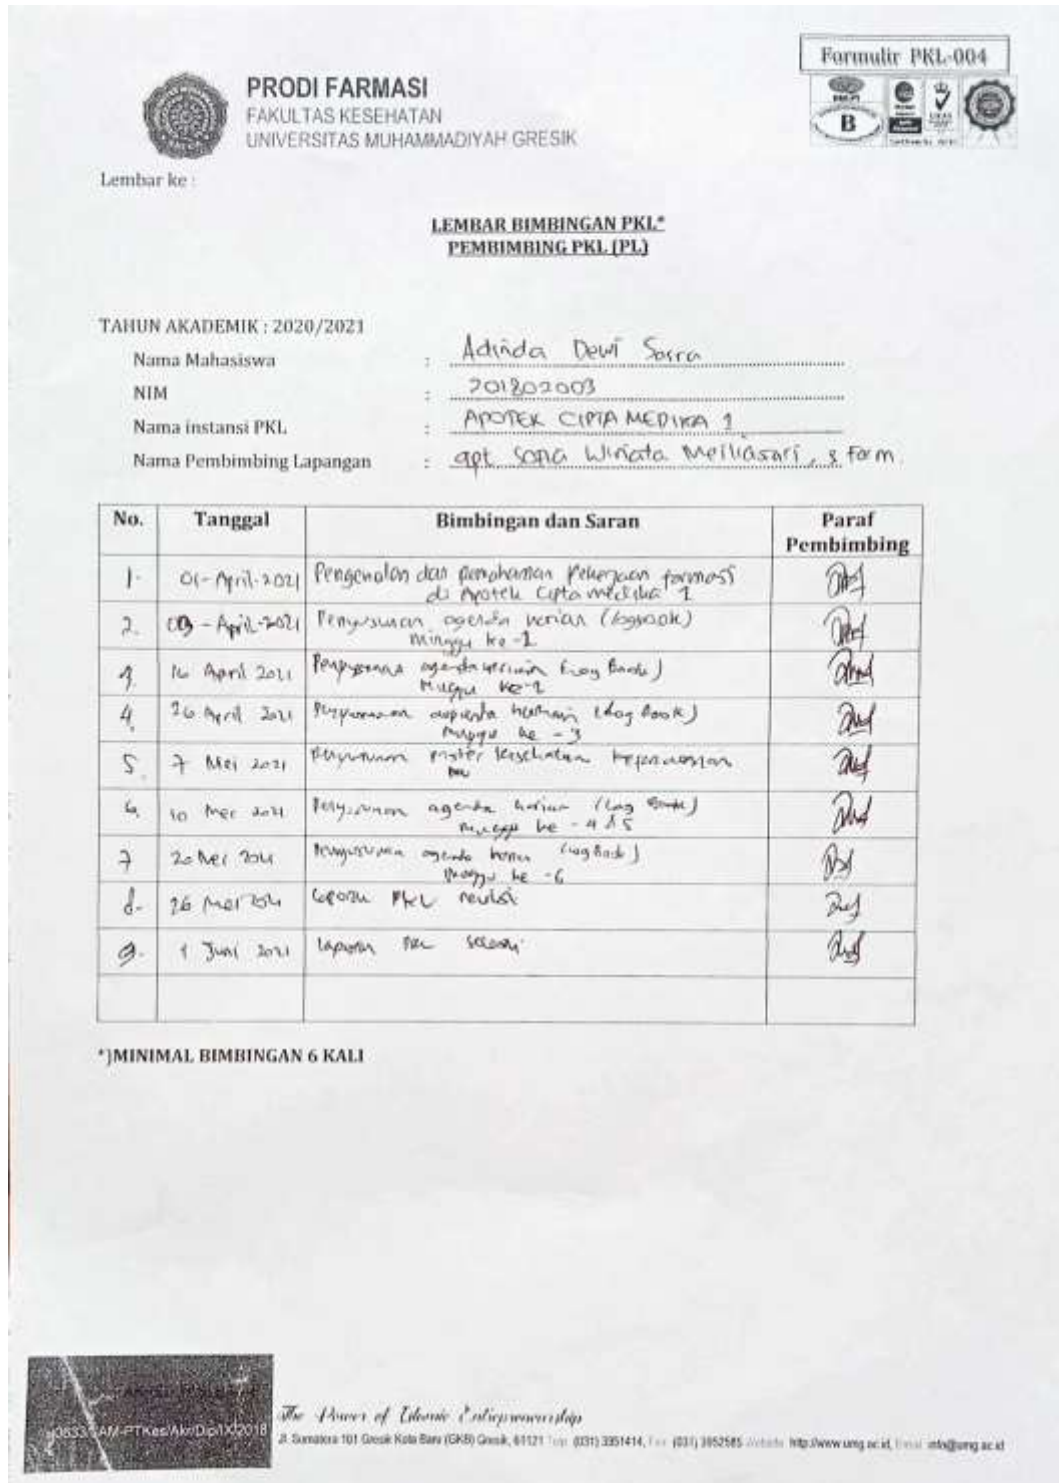 Formulir PKL-004
PRODI FARMASI
FAKULTAS KESEHATAN
UNIVERSITAS MUHAMMADIYAH GRESIK
B
Lembar ke :
LEMBAR BIMBINGAN PKL*
PEMBIMBING PKL (PL)
TAHUN AKADEMIK : 2020/2021
Nama Mahasiswa : Adinda Dewi Sosra
NIM : 201802003
Nama instansi PKL : APOTEK CIPTA MEDIKA 1
Nama Pembimbing Lapangan : apt. Sona Winata Meiliasari, S Farm.
No. Tanggal Bimbingan dan Saran Paraf
Pembimbing
1. 01-April-2021 Pengenalan dan pemahaman Pekerjaan farmasi
di Apotek Cipta medika 1
2. 09-April-2021 Penyusunan agenda harian (logbook)
minggu ke-1
3. 16 April 2021 Penyusunan agenda harian (Log Book)
Minggu ke-2
4. 26 April 2021 Penyusunan agenda harian (Log Book)
Minggu ke-3
5. 7 Mei 2021 Penyusunan kesehatan
6. 10 Mei 2021 Penyusunan agenda harian (Log Book)
Minggu ke-4 & 5
7 20 Mei 2021 Penyusunan agenda harian (Log Book)
Minggu ke-6
8. 26 Mei 2021 Laporan PKL revisi
9. 1 Juni 2021 Laporan PKL selesai
*)MINIMAL BIMBINGAN 6 KALI
AM-PTKes/Akr/Dip/IX/2018
The Power of Islamic Entrepreneurship
Jl. Sumatera 101 Gresik Kota Baru (GKB) Gresik, 61121 (031) 3951414, (031) 3952585 http://www.umg.ac.id, info@umg.ac.id